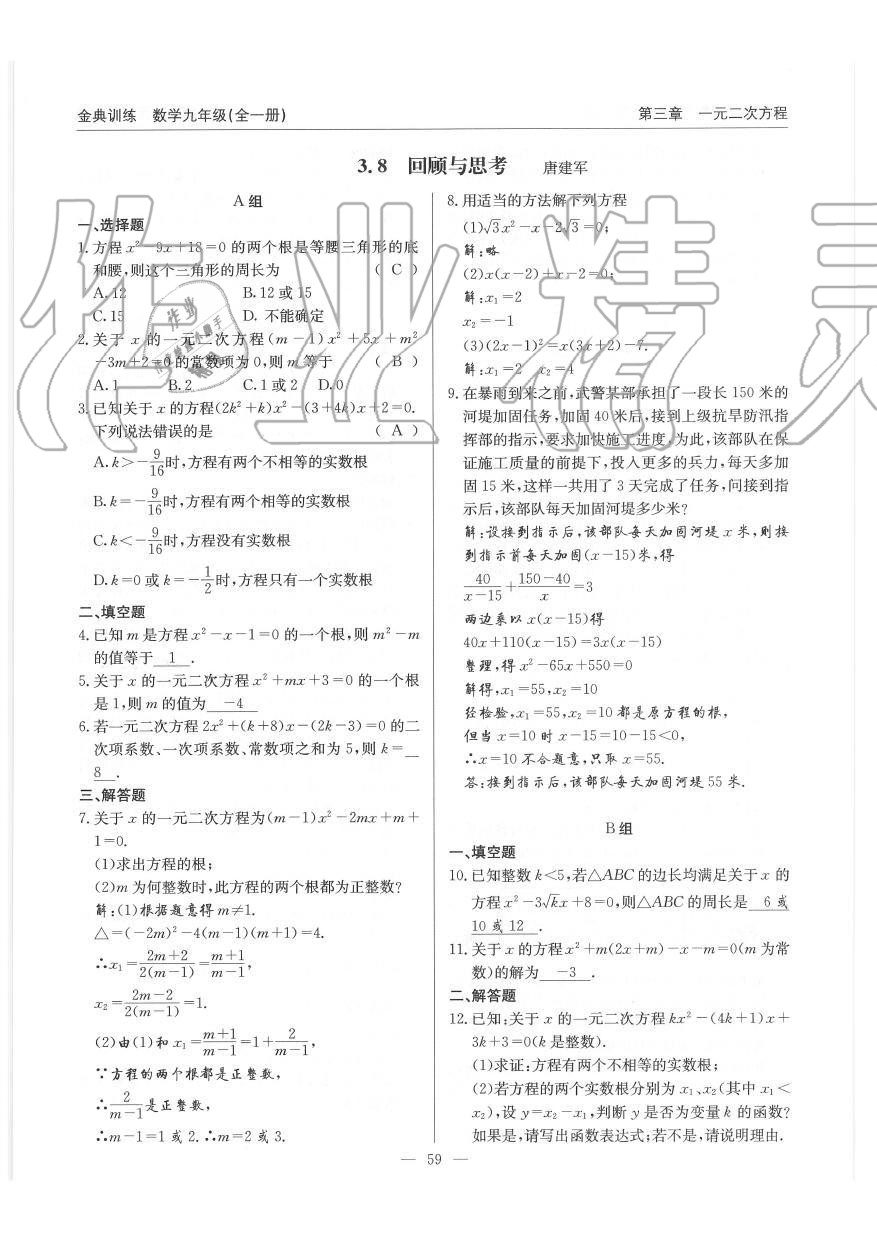 金典训练　数学九年级(全一册)
第三章　一元二次方程
3.8　回顾与思考　唐建军
A组
一、选择题
1.方程 x²－9x＋18＝0 的两个根是等腰三角形的底
和腰,则这个三角形的周长为　( C )
A.12　B.12 或 15
C.15　D. 不能确定
2.关于 x 的一元二次方程(m－1)x²＋5x＋m²
－3m＋2＝0 的常数项为 0,则 m 等于　( B )
A.1　B.2　C.1 或 2　D.0
3.已知关于 x 的方程(2k²＋k)x²－(3＋4k)x＋2＝0.
下列说法错误的是　( A )
A.k＞－9/16时,方程有两个不相等的实数根
B.k＝－9/16时,方程有两个相等的实数根
C.k＜－9/16时,方程没有实数根
D.k＝0 或 k＝－1/2时,方程只有一个实数根
二、填空题
4.已知 m 是方程 x²－x－1＝0 的一个根,则 m²－m
的值等于 1 .
5.关于 x 的一元二次方程 x²＋mx＋3＝0 的一个根
是 1,则 m 的值为 －4
6.若一元二次方程 2x²＋(k＋8)x－(2k－3)＝0 的二
次项系数、一次项系数、常数项之和为 5,则 k＝
8 .
三、解答题
7.关于 x 的一元二次方程为(m－1)x²－2mx＋m＋
1＝0.
(1)求出方程的根;
(2)m 为何整数时,此方程的两个根都为正整数?
解:(1)根据题意得 m≠1.
△＝(－2m)²－4(m－1)(m＋1)＝4.
∴x₁＝(2m＋2)/(2(m－1))＝(m＋1)/(m－1),
x₂＝(2m－2)/(2(m－1))＝1.
(2)由(1)和 x₁＝(m＋1)/(m－1)＝1＋2/(m－1),
∵方程的两个根都是正整数,
∴2/(m－1)是正整数,
∴m－1＝1 或 2.∴m＝2 或 3.
8.用适当的方法解下列方程
(1)√3x²－x－2√3＝0;
解:略
(2)x(x－2)＋x－2＝0;
解:x₁＝2
x₂＝－1
(3)(2x－1)²＝x(3x＋2)－7.
解:x₁＝2　x₂＝4
9.在暴雨到来之前,武警某部承担了一段长 150 米的
河堤加固任务,加固 40 米后,接到上级抗旱防汛指
挥部的指示,要求加快施工进度,为此,该部队在保
证施工质量的前提下,投入更多的兵力,每天多加
固 15 米,这样一共用了 3 天完成了任务,问接到指
示后,该部队每天加固河堤多少米?
解:设接到指示后,该部队每天加固河堤 x 米,则接
到指示前每天加固(x－15)米,得
40/(x－15)＋(150－40)/x＝3
两边乘以 x(x－15)得
40x＋110(x－15)＝3x(x－15)
整理,得 x²－65x＋550＝0
解得,x₁＝55,x₂＝10
经检验,x₁＝55,x₂＝10 都是原方程的根,
但当 x＝10 时 x－15＝10－15＜0,
∴x＝10 不合题意,只取 x＝55.
答:接到指示后,该部队每天加固河堤 55 米.
B组
一、填空题
10.已知整数 k＜5,若△ABC 的边长均满足关于 x 的
方程 x²－3√kx＋8＝0,则△ABC 的周长是 6 或
10 或 12 .
11.关于 x 的方程 x²＋m(2x＋m)－x－m＝0(m 为常
数)的解为 －3 .
二、解答题
12.已知:关于 x 的一元二次方程 kx²－(4k＋1)x＋
3k＋3＝0(k 是整数).
(1)求证:方程有两个不相等的实数根;
(2)若方程的两个实数根分别为 x₁、x₂(其中 x₁＜
x₂),设 y＝x₂－x₁,判断 y 是否为变量 k 的函数?
如果是,请写出函数表达式;若不是,请说明理由.
— 59 —
作业精灵